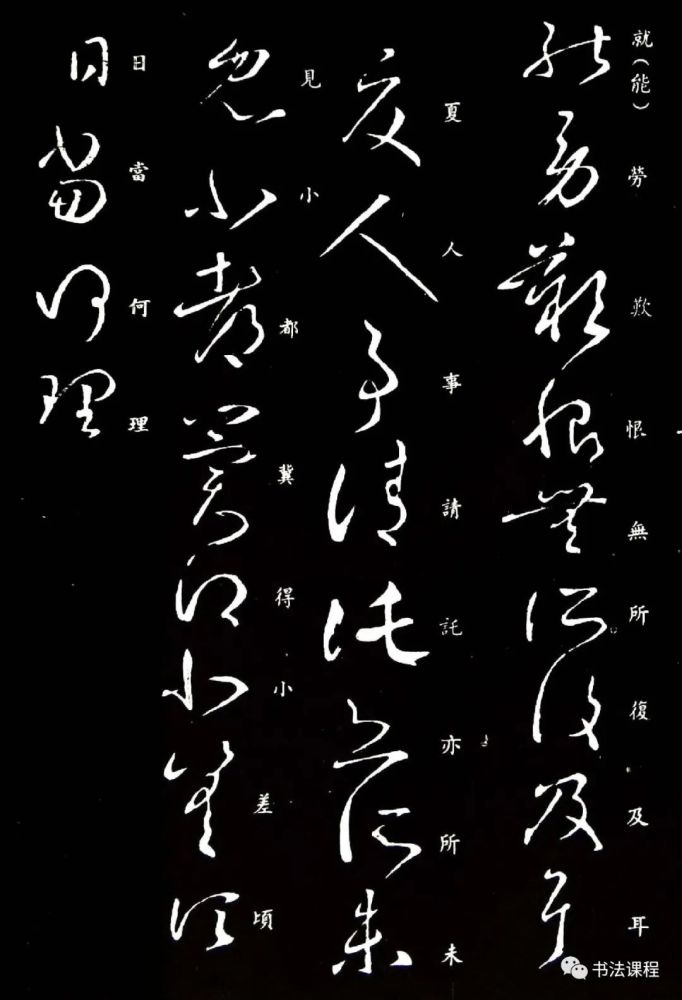 就(能)勞歎恨無所復及耳
夏人事請託亦所未
見小都冀得小差頃
日當何理
书法课程